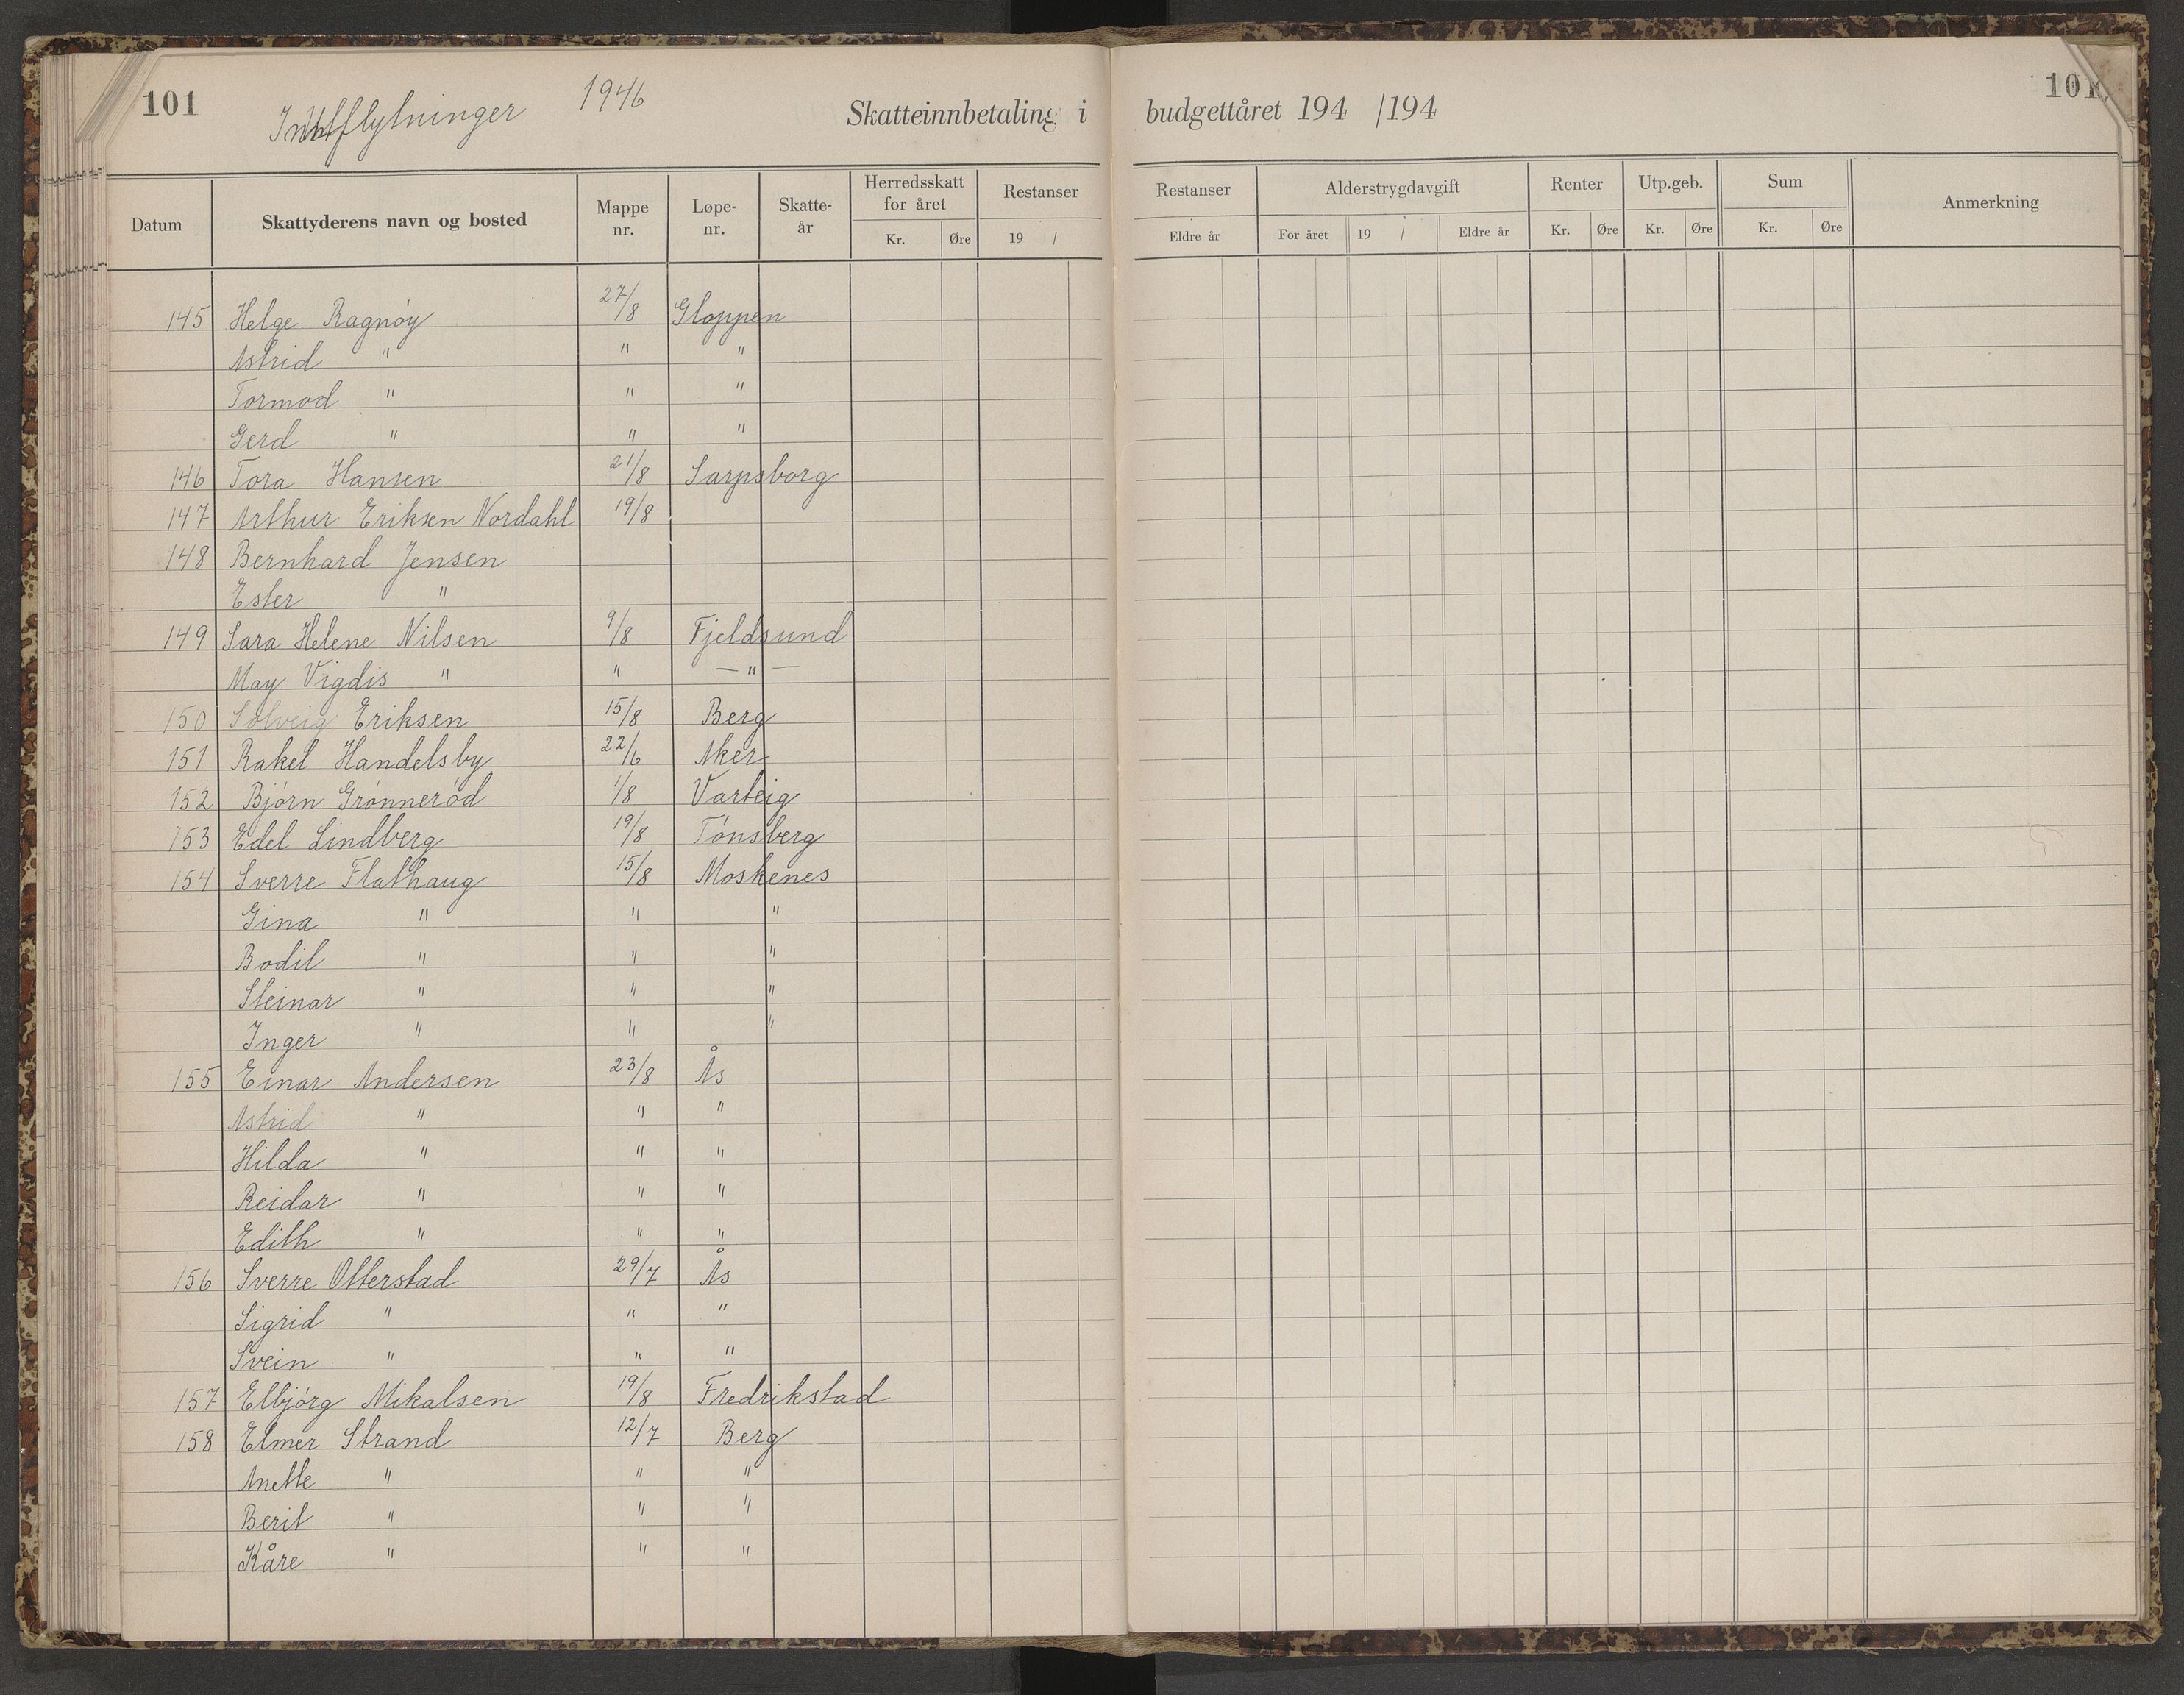 101 1946 Skatteinnbetaling i budgettåret 194 /194 101
Datum Skattyderens navn og bosted Mappe nr. Løpe-nr. Skatte-år Herredsskatt for året Kr. Øre Restanser 19 / Restanser Eldre år Alderstrygdavgift For året 19 / Eldre år Renter Kr. Øre Utp.geb. Kr. Øre Sum Kr. Øre Anmerkning
145 Helge Ragnøy 27/8 Gloppen
Astrid " " "
Tormod " " "
Gerd " " "
146 Tora Hansen 21/8 Sarpsborg
147 Arthur Eriksen Nordahl 19/8
148 Bernhard Jensen
Ester "
149 Sara Helene Nilsen 9/8 Fjeldsund
May Vigdis " " — " —
150 Solveig Eriksen 15/8 Berg
151 Rakel Handelsby 22/6 Aker
152 Bjørn Grønnerød 1/8 Varteig
153 Edel Lindberg 19/8 Tønsberg
154 Sverre Flathaug 15/8 Moskenes
Gina " " "
Bodil " " "
Steinar " " "
Inger " " "
155 Einar Andersen 23/8 Ås
Astrid " " "
Hilda " " "
Reidar " " "
Edith " " "
156 Sverre Otterstad 29/7 Ås
Sigrid " " "
Svein " " "
157 Elbjørg Mikalsen 19/8 Fredrikstad
158 Elmer Strand 12/7 Berg
Anette " " "
Berit " " "
Kåre " " "